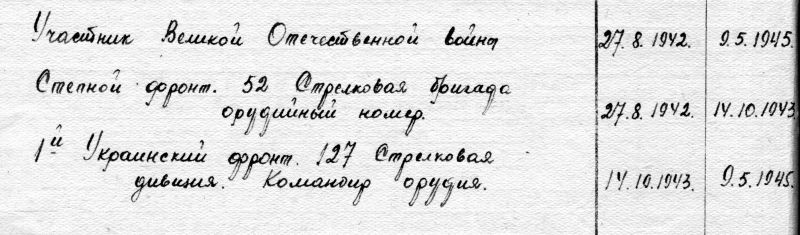 Участник Великой Отечественной войны 27.8.1942. 9.5.1945.
Степной фронт. 52 Стрелковая бригада
орудийный номер. 27.8.1942. 14.10.1943.
1й Украинский фронт. 127 Стрелковая
дивизия. Командир орудия. 14.10.1943. 9.5.1945.